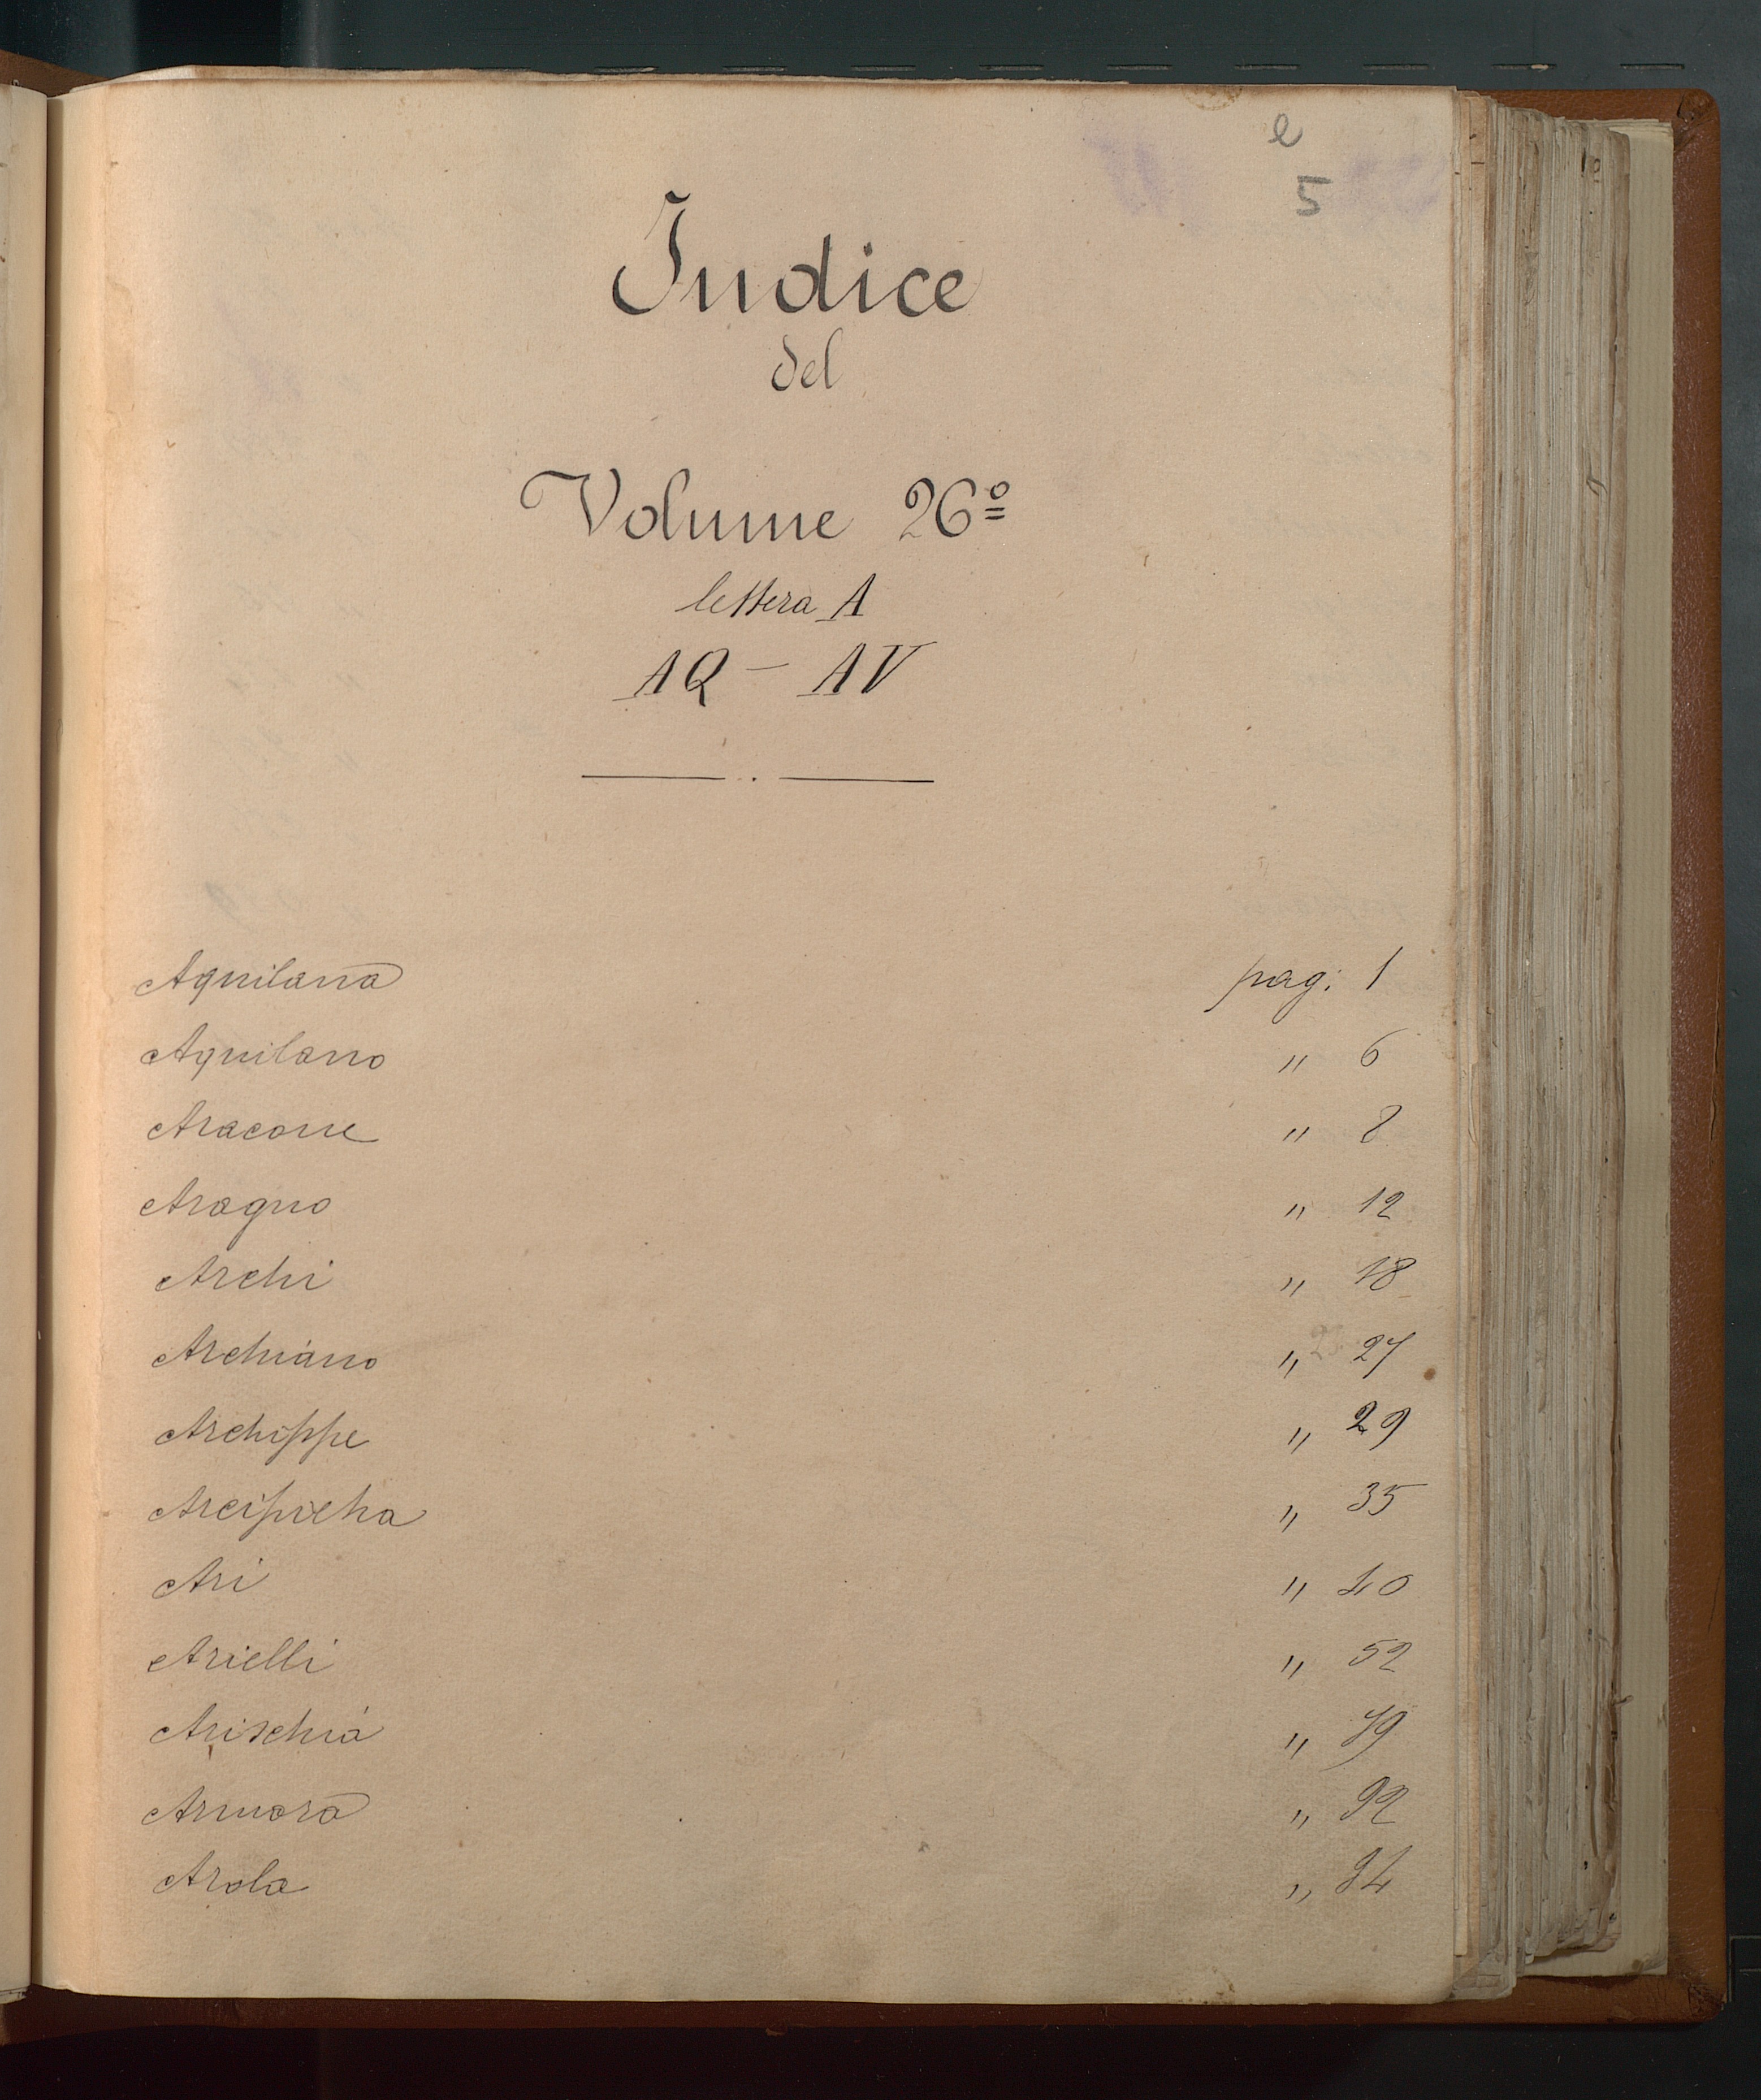 e
5
Indice
del
Volume 26º
lettera A
AQ — AV
Aquilana pag: 1
Aquilano " 6
Aracone " 8
Aragno " 12
Archi " 18
Archiano " 27
Archippe " 29
Arcipicha " 35
Ari " 40
Arielli " 52
Arischia " 79
Armora " 92
Arola " 94